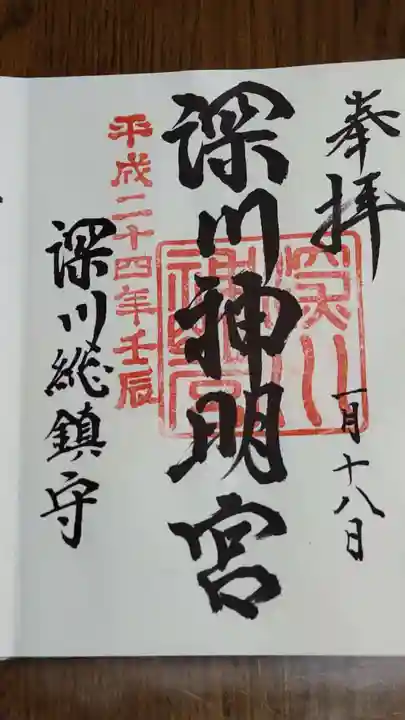 奉拝
一月十八日
深川神明宮
深川神明宮
平成二十四年壬辰
深川総鎮守